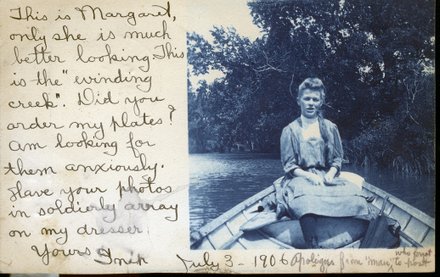 This is Margaret,
only she is much
better looking. This
is the "winding
creek". Did you
order my plates?
Am looking for
them anxiously.
Have your photos
in soldierly array
on my dresser.
Yours
July 3 - 1906 Apologies from "Man,"
who forgot
to post